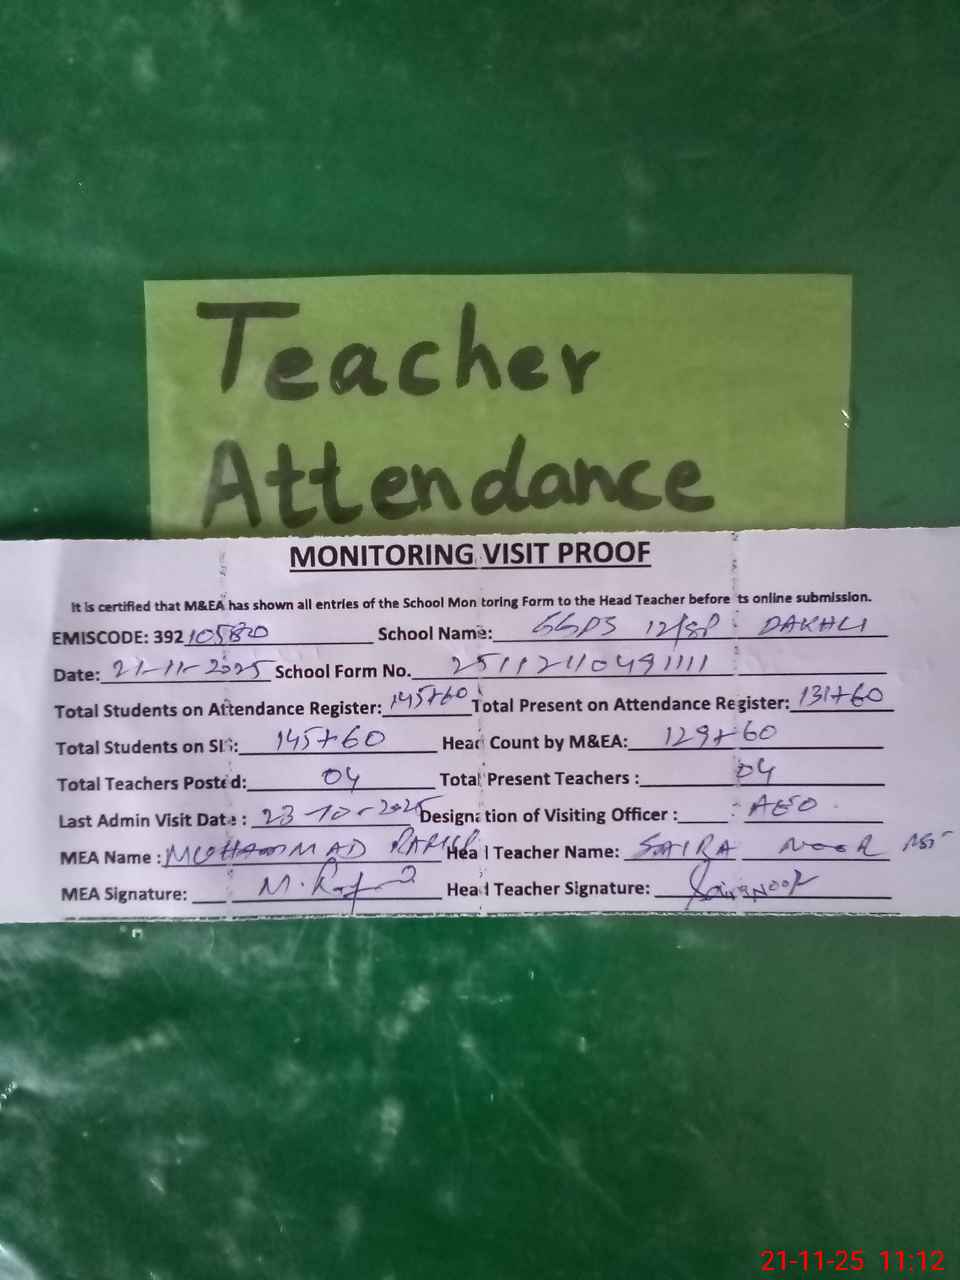 Teacher
Attendance
MONITORING VISIT PROOF
It is certified that M&EA has shown all entries of the School Mon toring Form to the Head Teacher before ts online submission.
EMISCODE: 392 105820 School Name: GGPS 12/SP DAKALI
Date: 21-11-2025 School Form No. 251121104911111
Total Students on Attendance Register: 145+60 Total Present on Attendance Register: 131+60
Total Students on SIS: 145+60 Head Count by M&EA: 129+60
Total Teachers Posted: 04 Total Present Teachers : 04
Last Admin Visit Date : 23-10-2025 Designation of Visiting Officer : AEO
MEA Name : MUHAMMAD Head Teacher Name: SAIRA NOOR
MEA Signature: Head Teacher Signature: Saira Noor
21-11-25 11:12